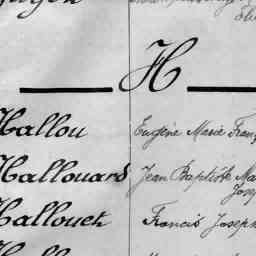 H
Hallou Eugène Marie Fran
Hallouard Jean Baptiste Ma
Josep
Hallouet Francis Joseph